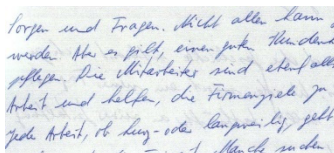 Sorgen und Fragen. Nicht allen kann
werden. Aber es gilt, einen guten Kunden
pflegen. Die Mitarbeiter sind ebenfalls
Arbeit und helfen, die Firmenziele zu
jede Arbeit, ob kurz- oder langweilig, geht
Manche suchen